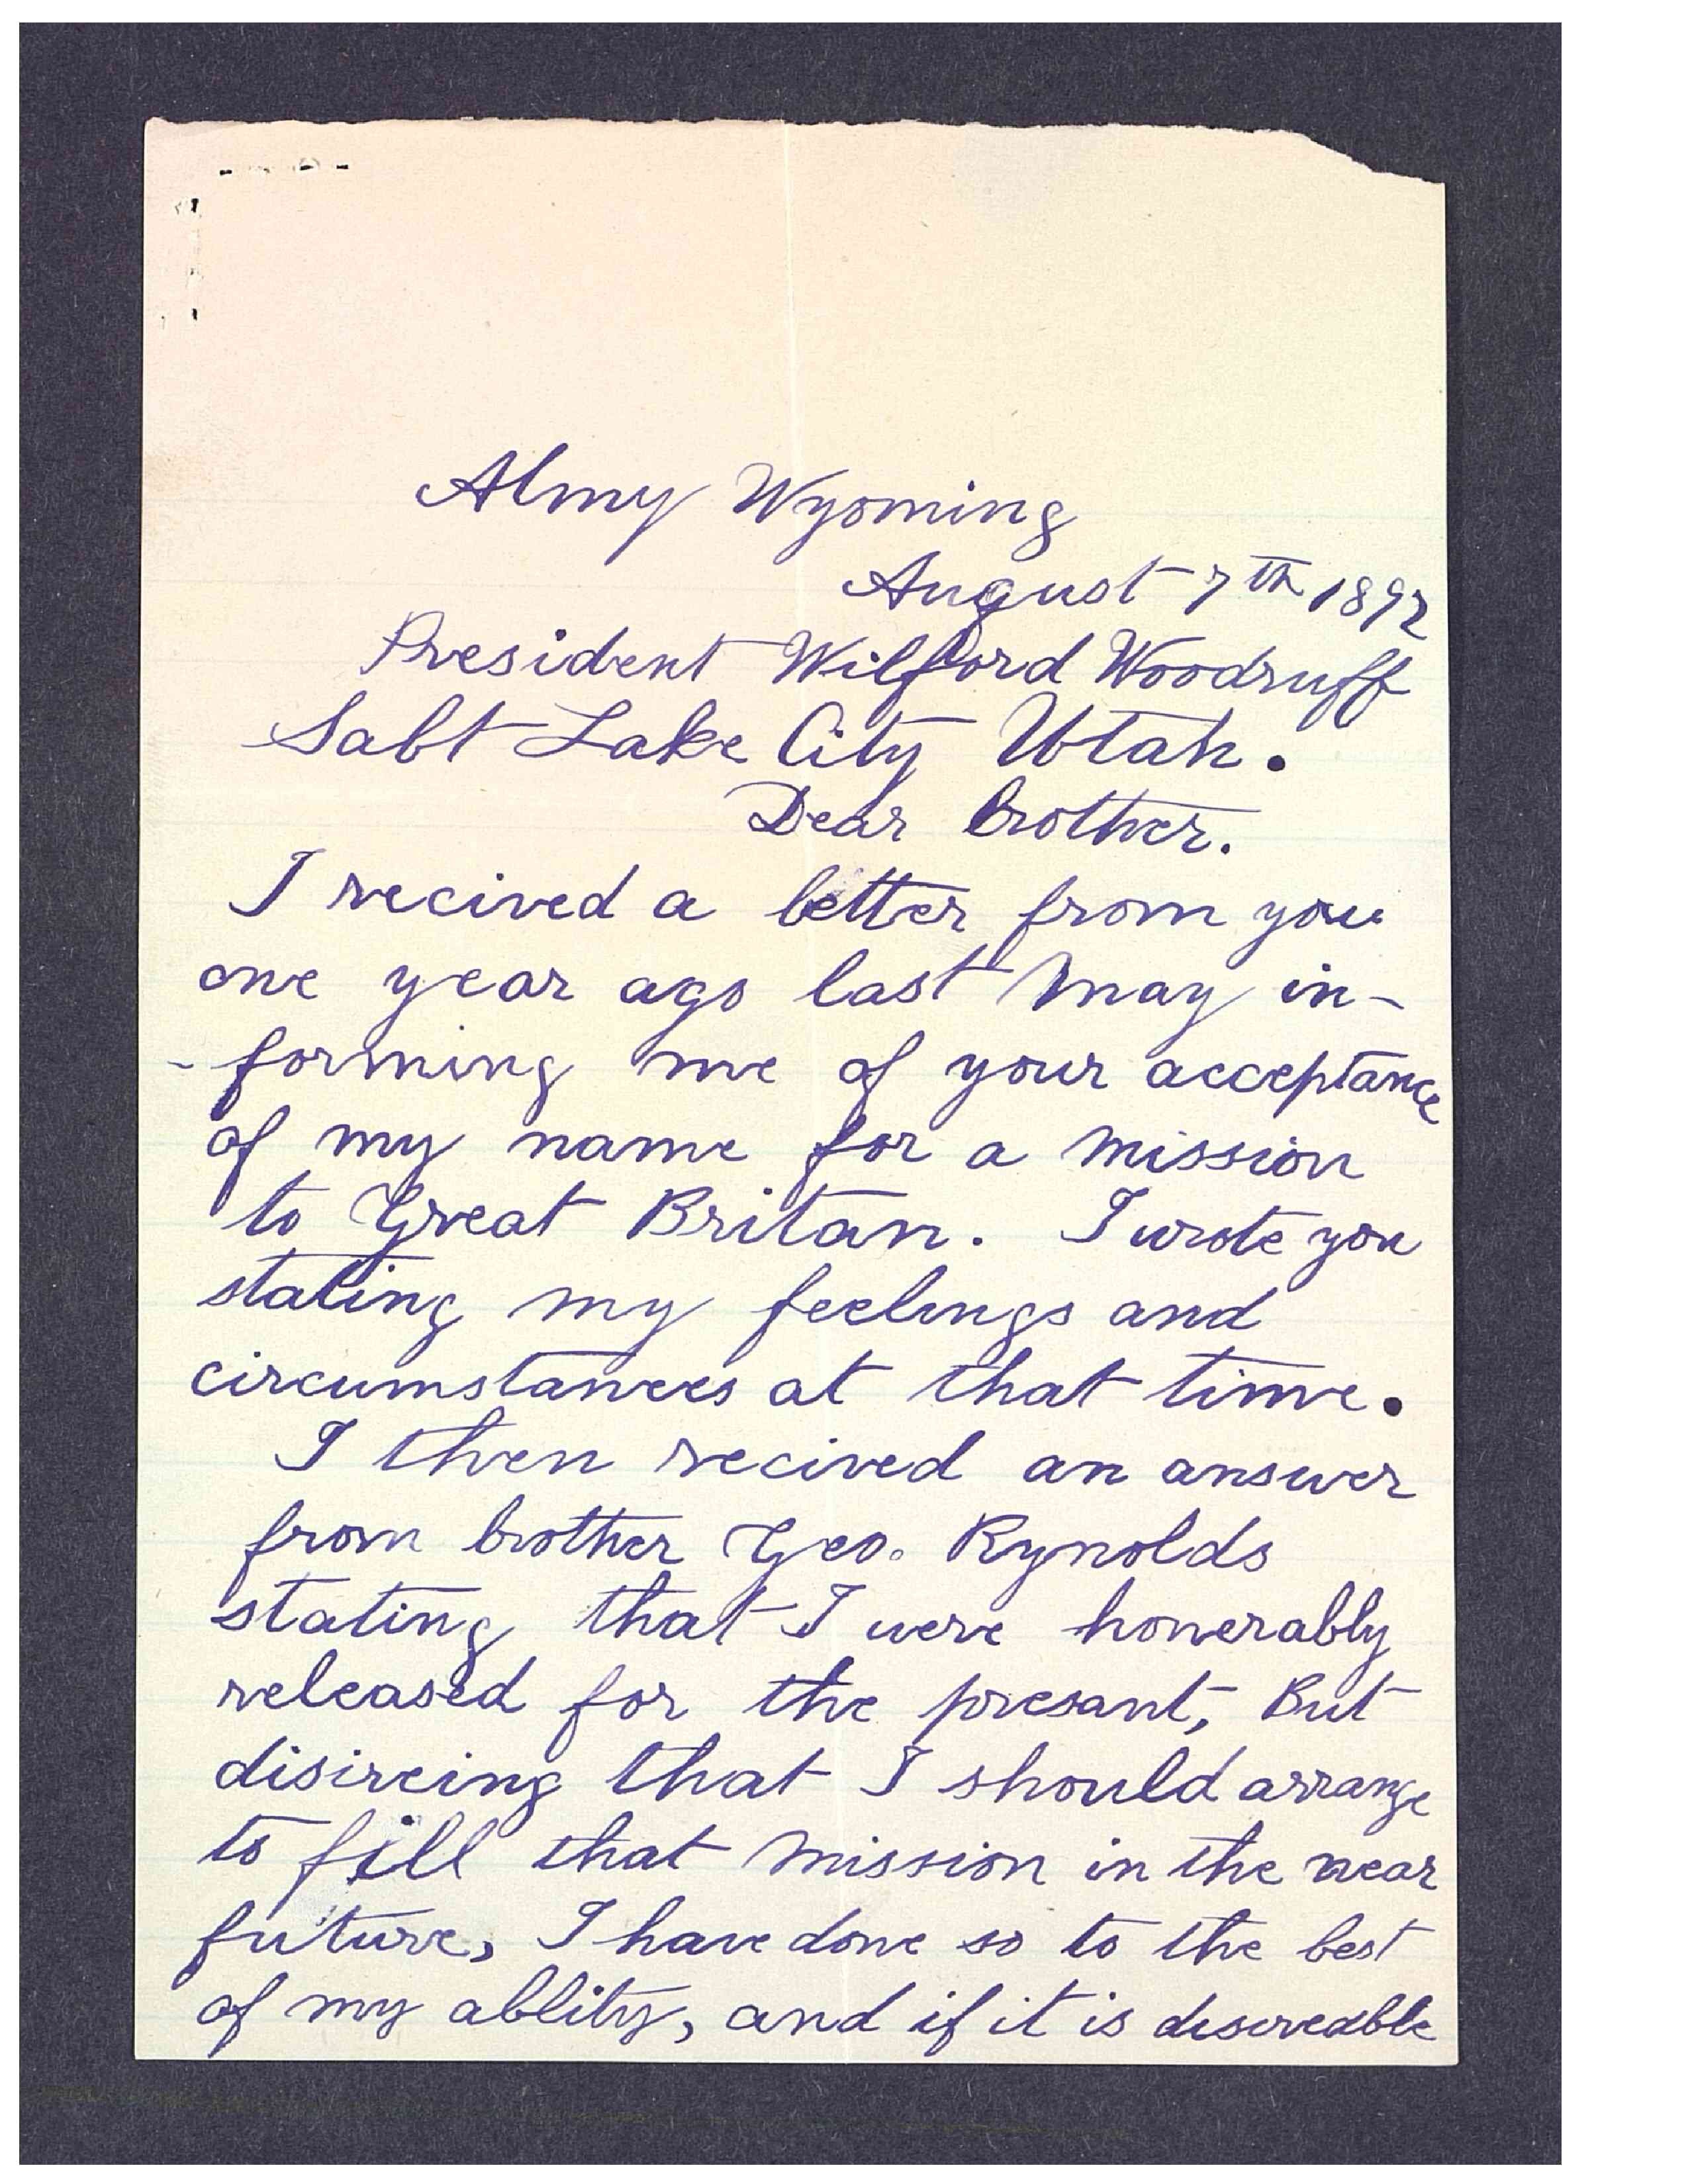 Almy Wyoming
August 7th 1892
President Wilford Woodruff
Salt Lake City Utah.
Dear Brother.
I recived a letter from you
one year ago last May in-
-forming me of your acceptance
of my name for a mission
to Great Britan. I wrote you
stating my feelings and
circumstances at that time.
I then recived an answer
from brother Geo. Rynolds
stating that I were honerably
released for the presant, But
disireing that I should arrange
to fill that mission in the near
future, I have done so to the best
of my ablity, and if it is desireable